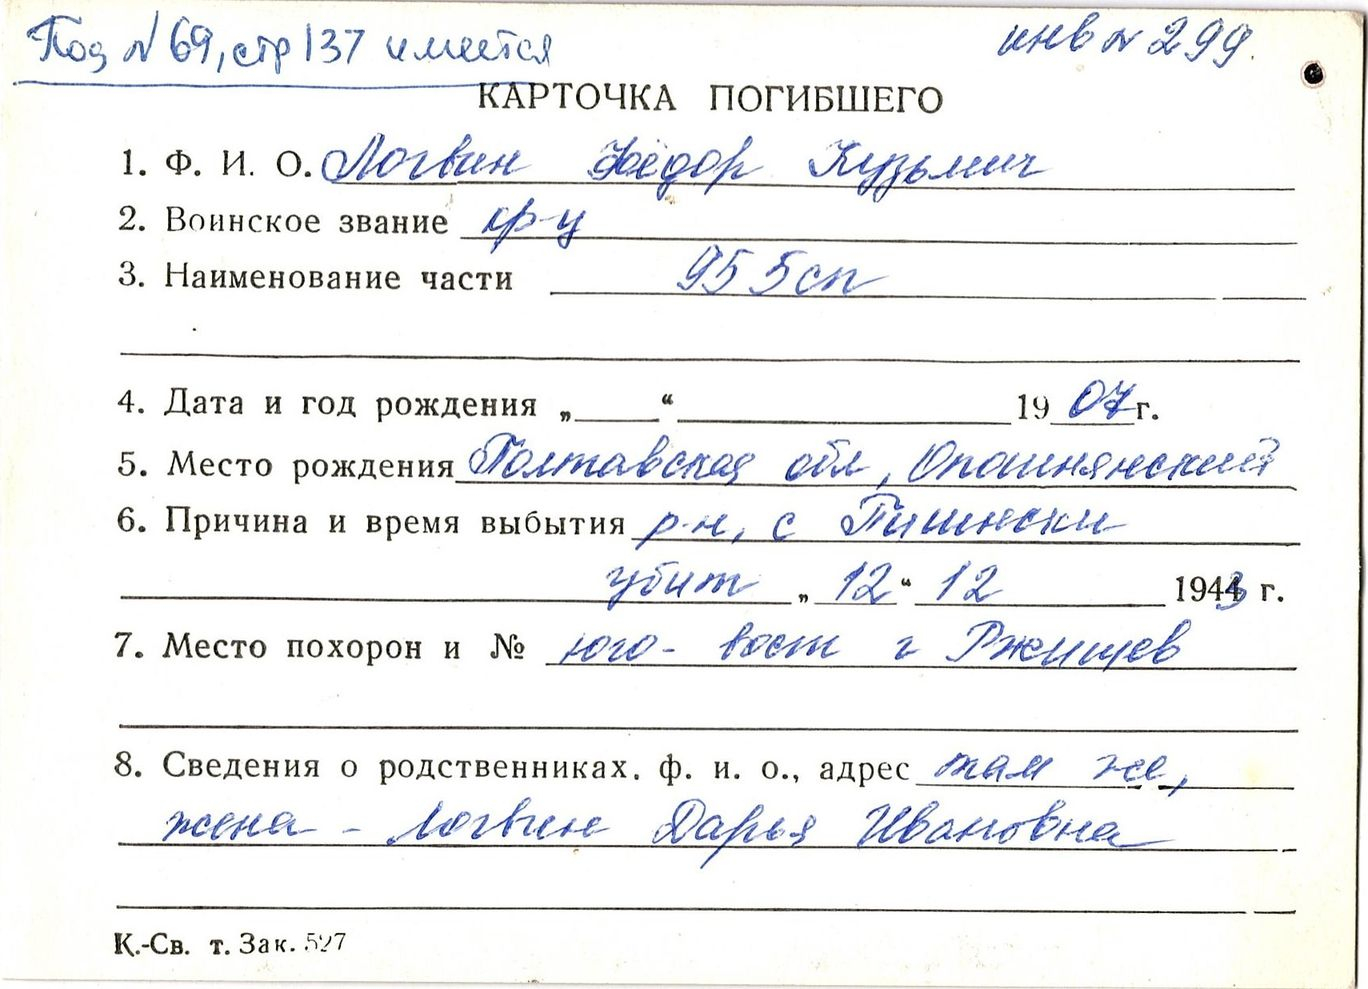 Под N 69, стр 137 имеется
инв N 299.
КАРТОЧКА ПОГИБШЕГО
1. Ф. И. О. Логвин Фёдор Кузьмич
2. Воинское звание кр-ц
3. Наименование части 955сп
4. Дата и год рождения „ “ 1907г.
5. Место рождения Полтавская обл, Опошнянский
6. Причина и время выбытия р-н, с Пишнски
убит „12“ 12 1943 г.
7. Место похорон и № юго-вост г Ржищев
8. Сведения о родственниках. ф. и. о., адрес там же,
жена - Логвин Дарья Ивановна
К.-Св. т. Зак. 527